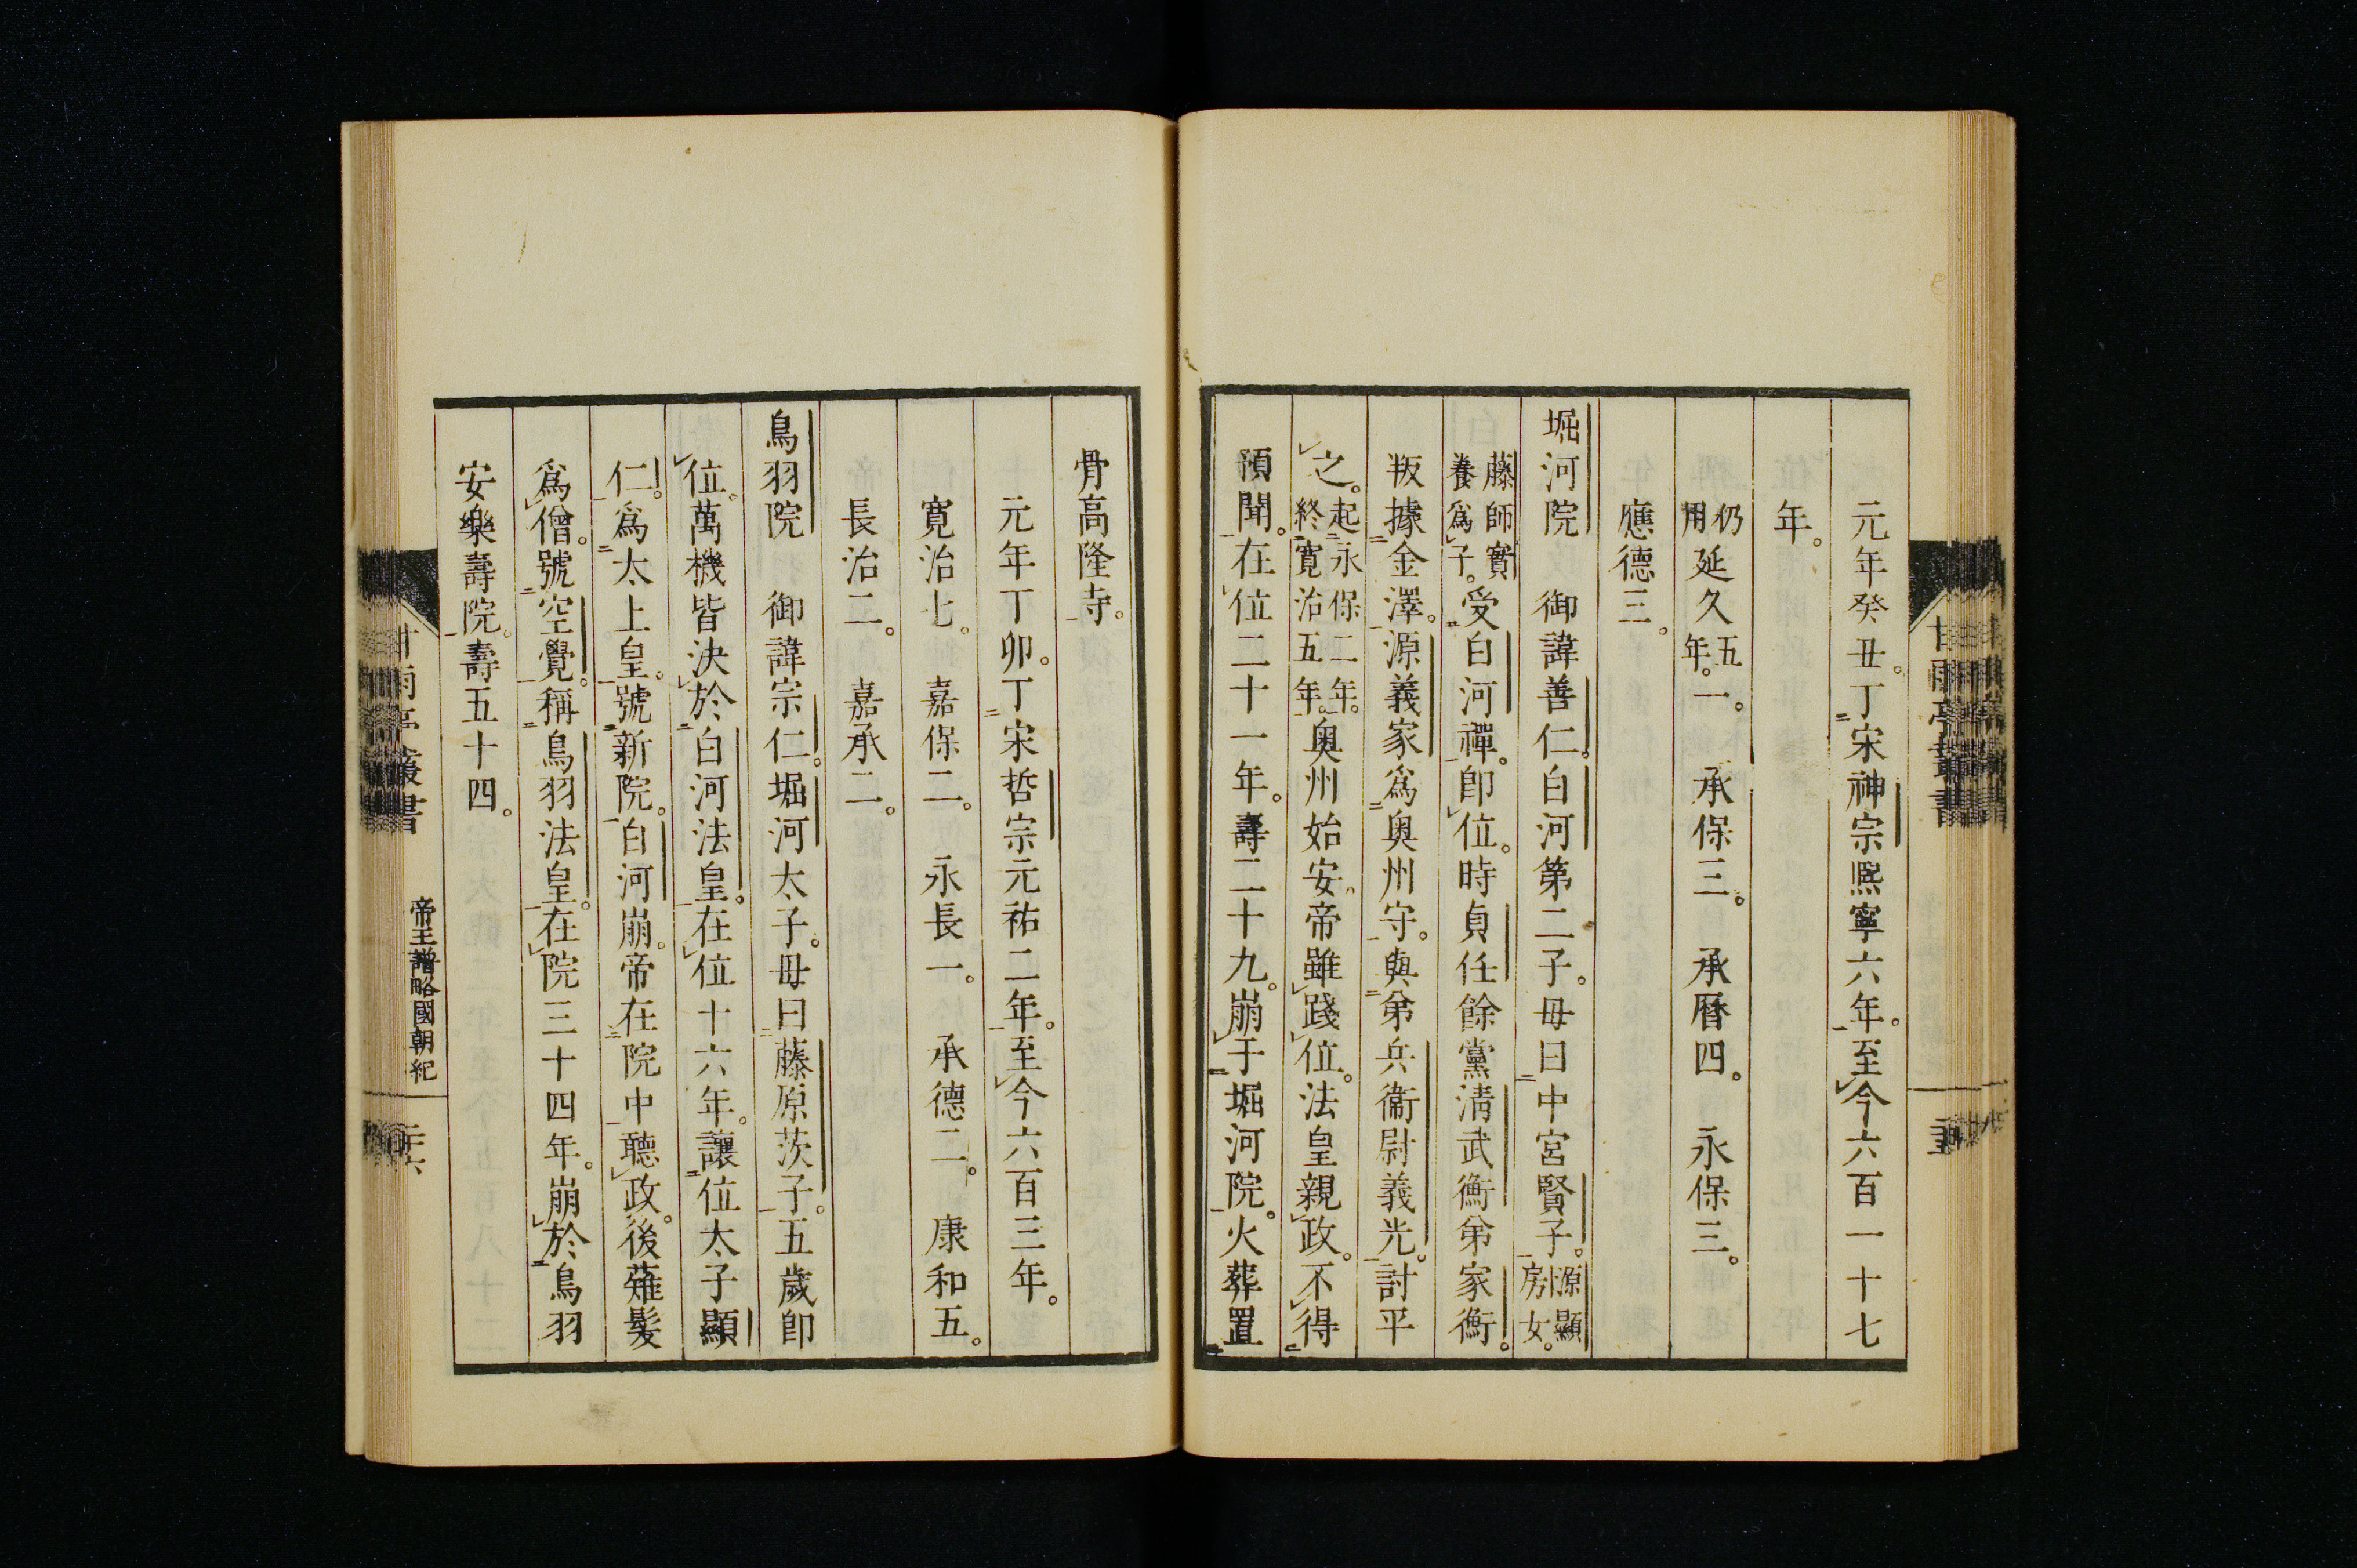 元年癸丑。丁宋神宗熈寧六年。至今六百一十七
年。
仍用延久五年。一。 承保三。 承曆四。 永保三。
應德三。
堀河院 御諱善仁。白河第二子。母曰中宮賢子。源顯房女。
藤師實養爲子。受白河禪。卽位。時貞任餘黨淸武衡弟家衡。
叛據金澤。源義家爲奥州守。與弟兵衞尉義光。討平
之。起永保二年。終寛治五年。奥州始安。帝雖踐位。法皇親政。不得
預聞。在位二十一年。壽二十九。崩于堀河院。火葬置
骨高隆寺。
元年丁卯。丁宋哲宗元祐二年。至今六百三年。
寛治七。 嘉保二。 永長一。 承德二。 康和五。
長治二。 嘉承二。
鳥羽院 御諱宗仁。堀河太子。母曰藤原茨子。五歲卽
位。萬機皆決於白河法皇。在位十六年。讓位太子顯
仁。爲太上皇。號新院。白河崩。帝在院中聽政。後薙髮
爲僧。號空覺。稱鳥羽法皇。在院三十四年。崩於鳥羽
安樂壽院。壽五十四。
甘雨亭叢書
帝王譜略國朝紀
二十六
甘雨亭叢書